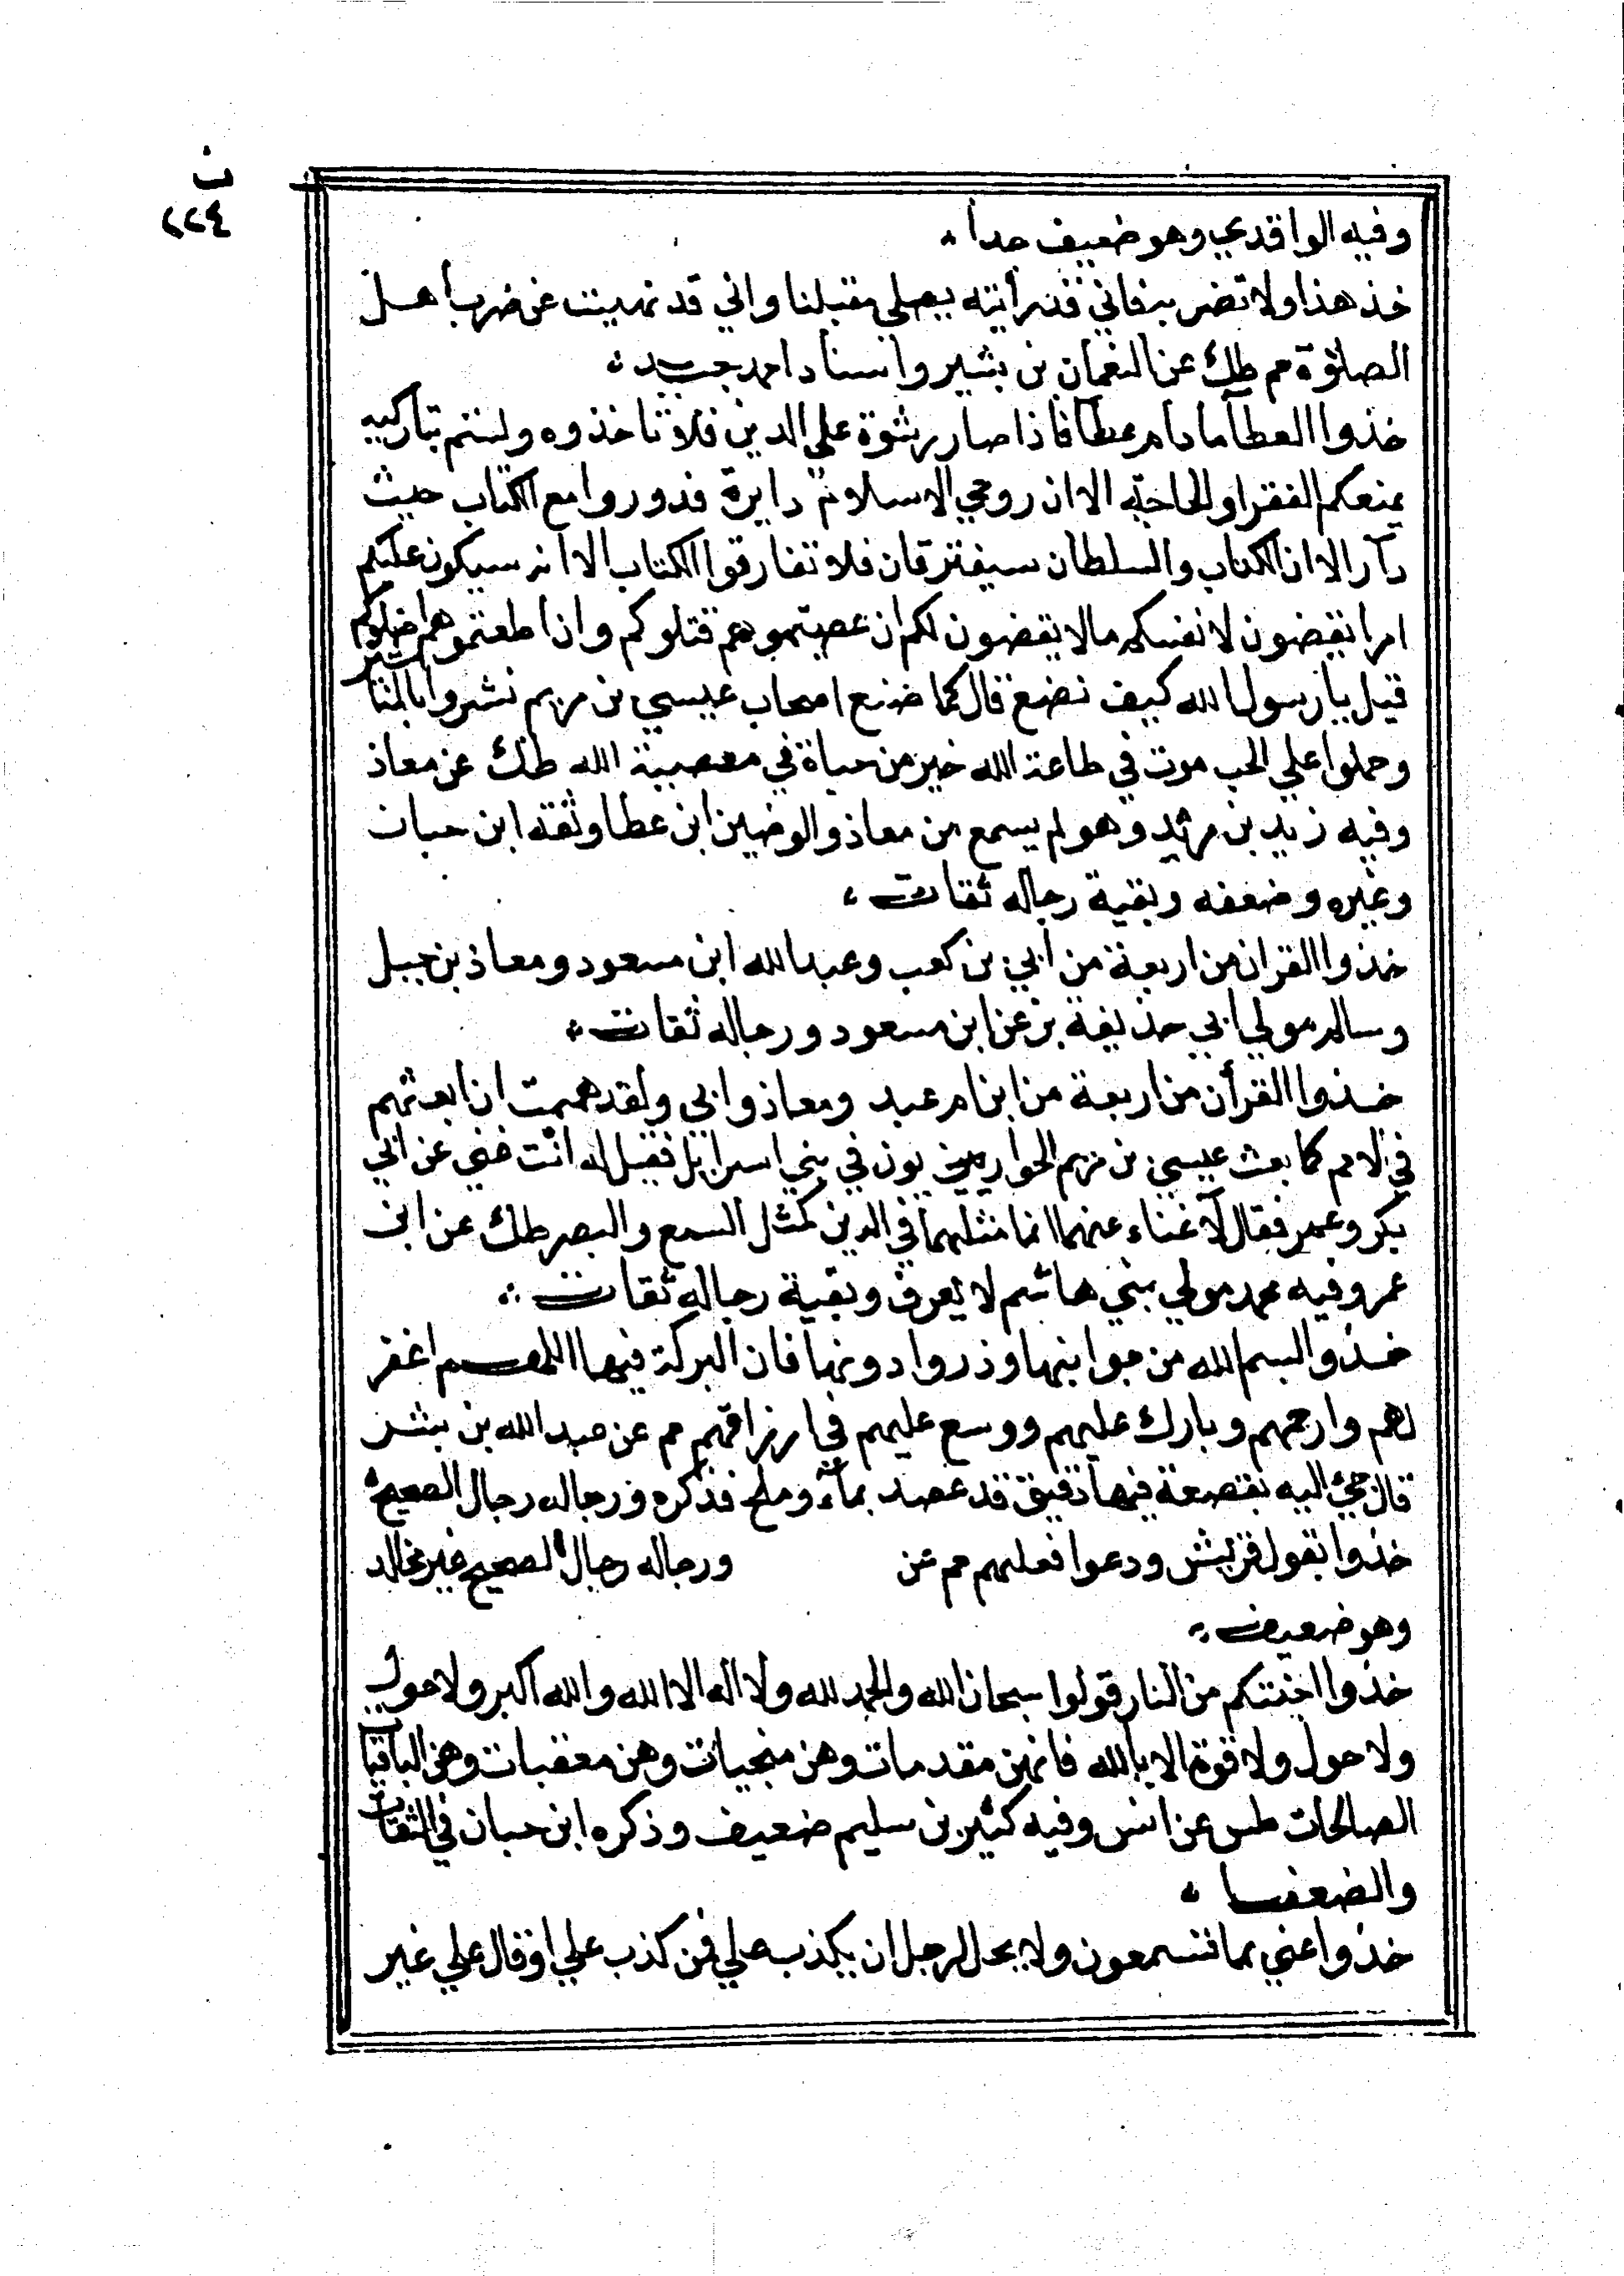 ن
٢٢٤
وفيه الواقدي وهو ضعيف جدا
خذ هذا ولا تضربه فاني قد رأيته يصلي مقبلنا واني قد نهيت عن ضرب اهل
الصلوة حم طك عن النعمان بن بشير واسناد احمد جيد
خذوا العطآ ما دام عطآ فاذا صار رشوة علي الدين فلا تاخذوه ولستم بتاركيه
يمنعكم الفقر والحاجة الا ان روحي الاسلام دايرة فدوروا مع الكتاب حيث
دار الا ان الكتاب والسلطان سيفترقان فلا تفارقوا الكتاب الا انه سيكون عليكم
امرا يقضون لانفسكم مالا يقضون لكم ان عصيتموهم قتلوكم وان اطعتموهم اضلوكم
قيل يا رسول الله كيف نصنع قال كما صنع اصحاب عيسي بن مريم نشروا بالمناشير
وحملوا علي الخب موت في طاعة الله خير من حياة في معصية الله طك عن معاذ
وفيه زيد بن مرثد وهو لم يسمع من معاذ والوضين ابن عطا وثقه ابن حبان
وغيره وضعفه وبقية رجاله ثقات
خذوا القران من اربعة من ابي بن كعب وعبد الله ابن مسعود ومعاذ بن جبل
وسالم مولي ابي حذيفة بز عن ابن مسعود ورجاله ثقات
خذوا القرأن من اربعة من ابن ام عبد ومعاذ وابي ولقد هممت ان ابعثهم
في الامم كما بعث عيسي بن مريم الحواريين في بني اسرايل فقيل له انت عن ابي
بكر وعمر فقال لا غناء عنهما انما مثلهما في الدين كمثل السمع والبصر طك عن ابن
عمر وفيه محمد مولي بني هاشم لا يعرف وبقية رجاله ثقات
خذوا بسم الله من جوانبها وذروا دونها فان البركة فيها اللهم اغفر
لهم وارحمهم وبارك عليهم ووسع عليهم في ارزاقهم حم عن عبد الله بن بشر
قال جيء اليه بقصعة فيها دقيق قد عصد بمآء وملح فذكره ورجاله رجال الصحيح
خذوا بقول قريش ودعوا فعلهم حم عن ورجاله رجال الصحيح غير مجالد
وهو ضعيف
خذوا جنتكم من النار قولوا سبحان الله والحمد لله ولا اله الا الله والله اكبر ولا حول
ولا حول ولا قوة الا بالله فانهن مقدمات وهن منجيات وهن معقبات وهن الباقيات
الصالحات طس عن انس وفيه كثير بن سليم ضعيف وذكره ابن حبان في الثقات
والضعفا
خذوا عني بما تسمعون ولا يحل لرجل ان يكذب علي فمن كذب علي او قال علي غير